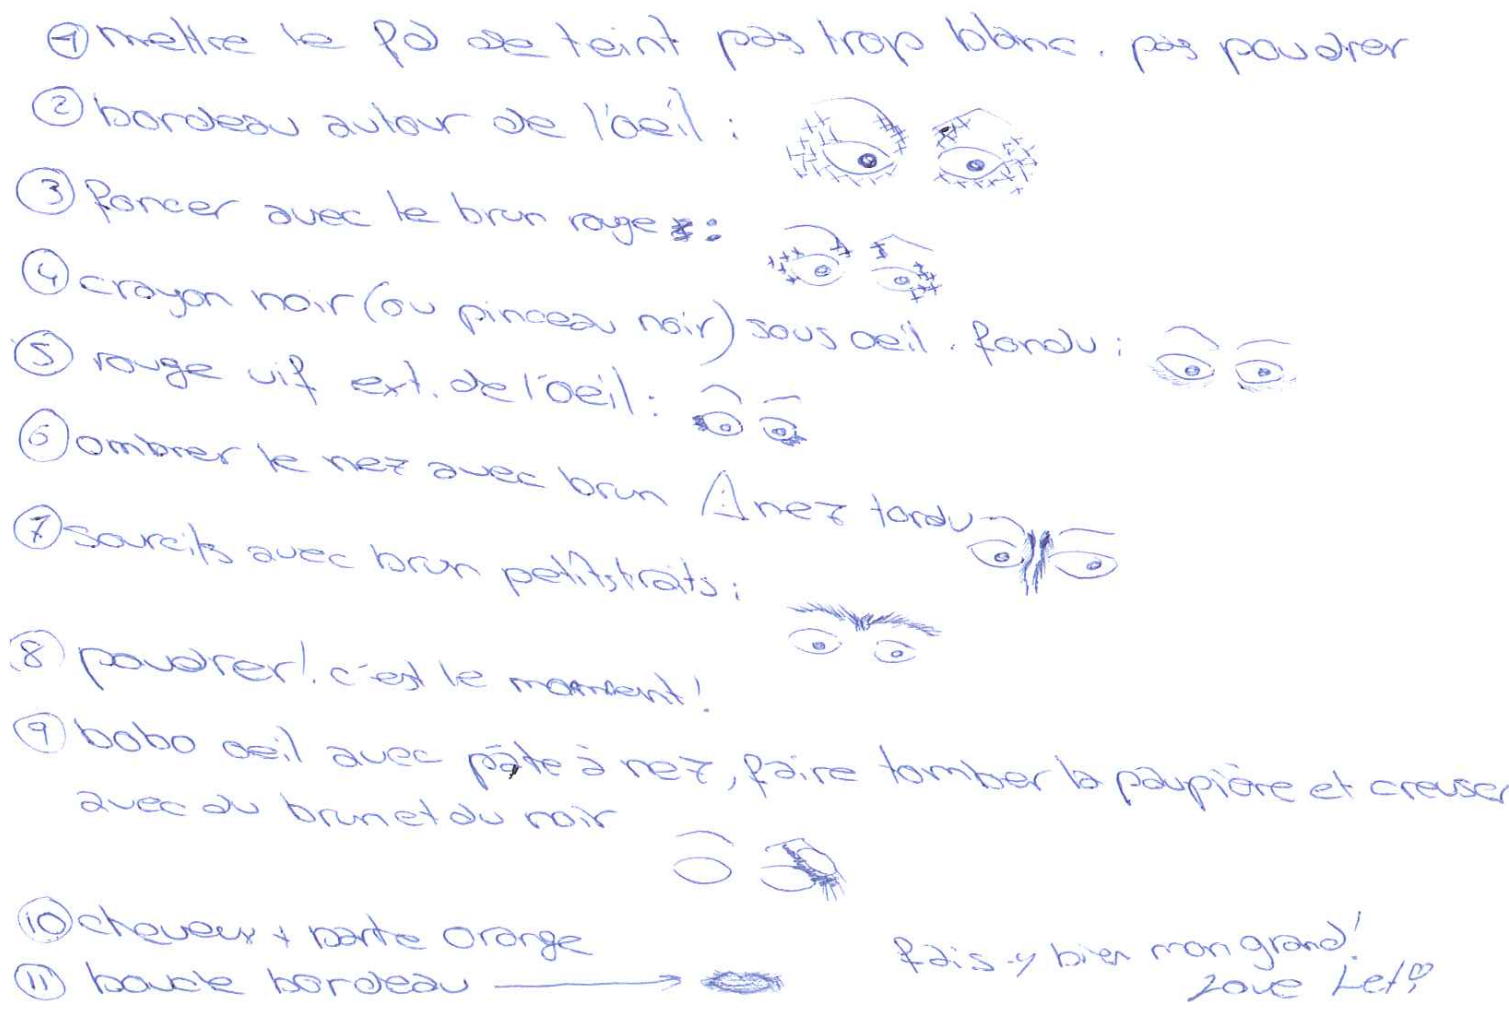 ① mettre le fd de teint pas trop blanc. pas poudrer
② bordeau autour de l'oeil :
③ foncer avec le brun rouge :
④ crayon noir (ou pinceau noir) sous oeil. fondu :
⑤ rouge vif ext. de l'oeil :
⑥ ombrer le nez avec brun ⚠ nez tordu
⑦ sourcils avec brun petits traits :
⑧ poudrer! c'est le moment!
⑨ bobo oeil avec pâte à nez, faire tomber la paupière et creuser
avec du brun et du noir
⑩ cheveux + patte orange
⑪ bouche bordeau →
fais-y bien mon grand!
Love Let ♡